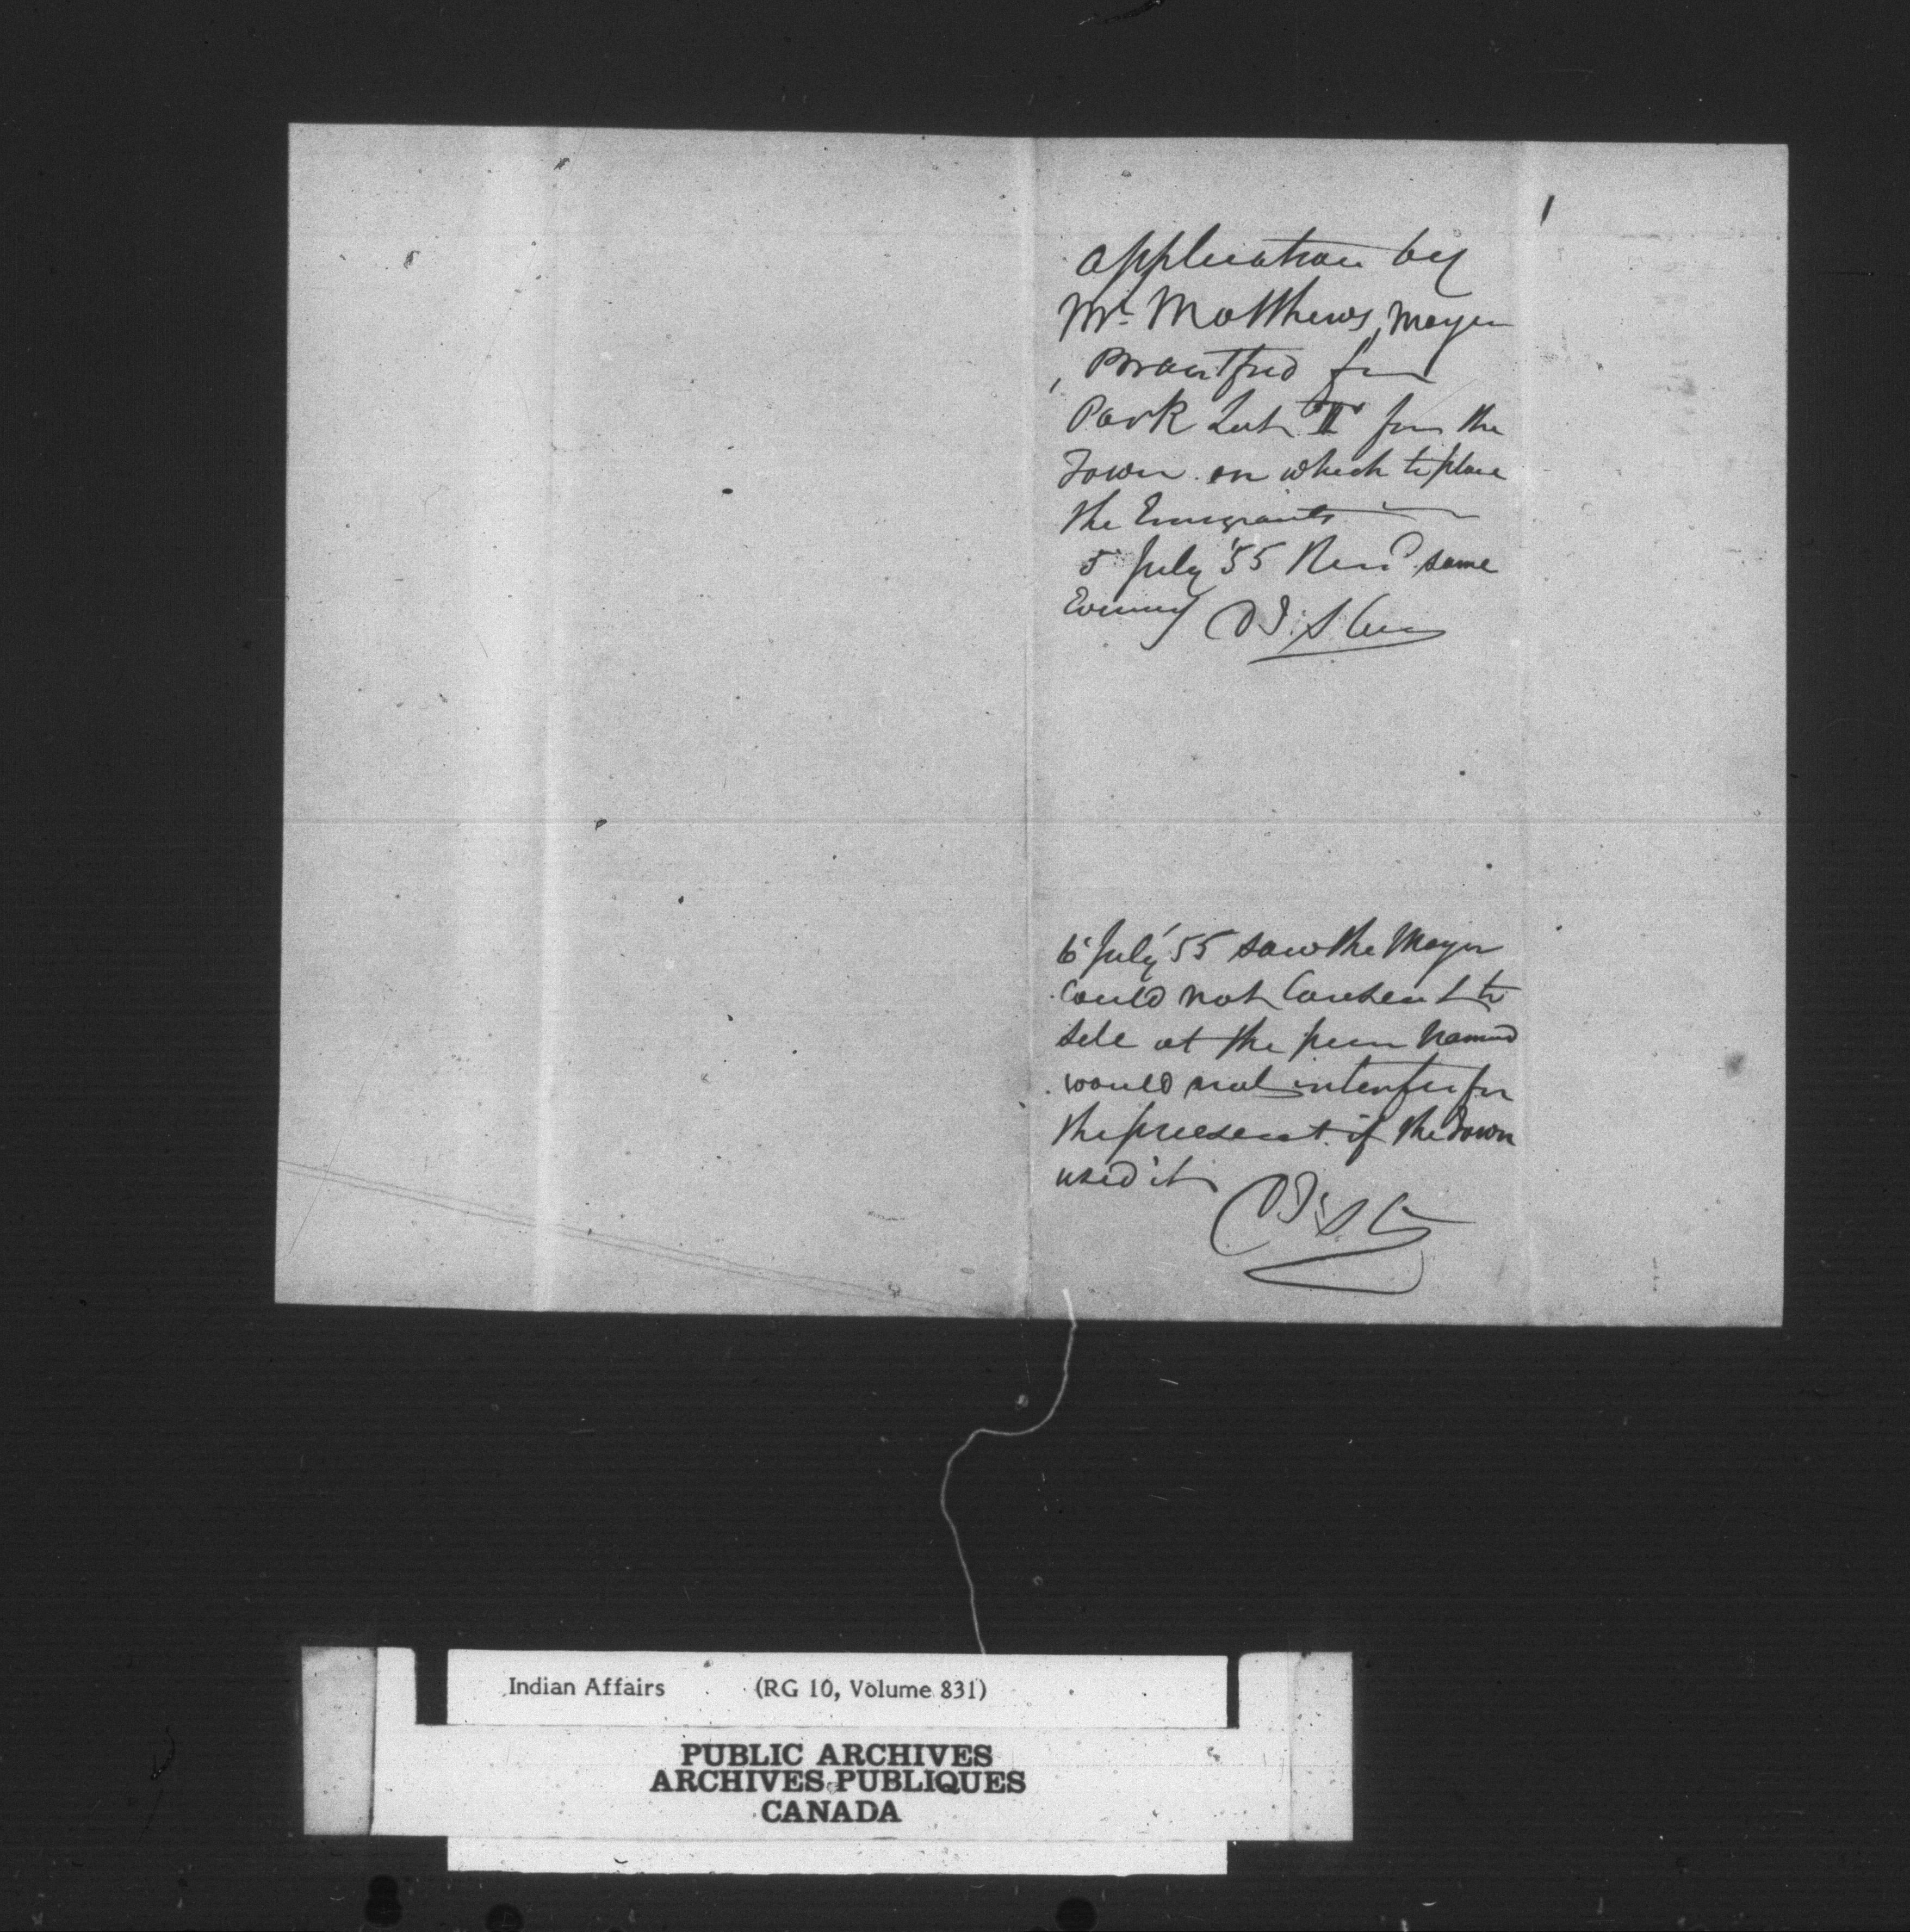 Application by
Mr. Matthews, Mayor
Brantford for
Park Lot II for the
Town on which to place
the Emigrants
5 July '55 Recd same
Evening
6 July '55 saw the Mayor
Could not Consent to
sell at the price named
would not interfere for
the present if the Town
used it
Indian Affairs (RG 10, Volume 831)
PUBLIC ARCHIVES
ARCHIVES PUBLIQUES
CANADA